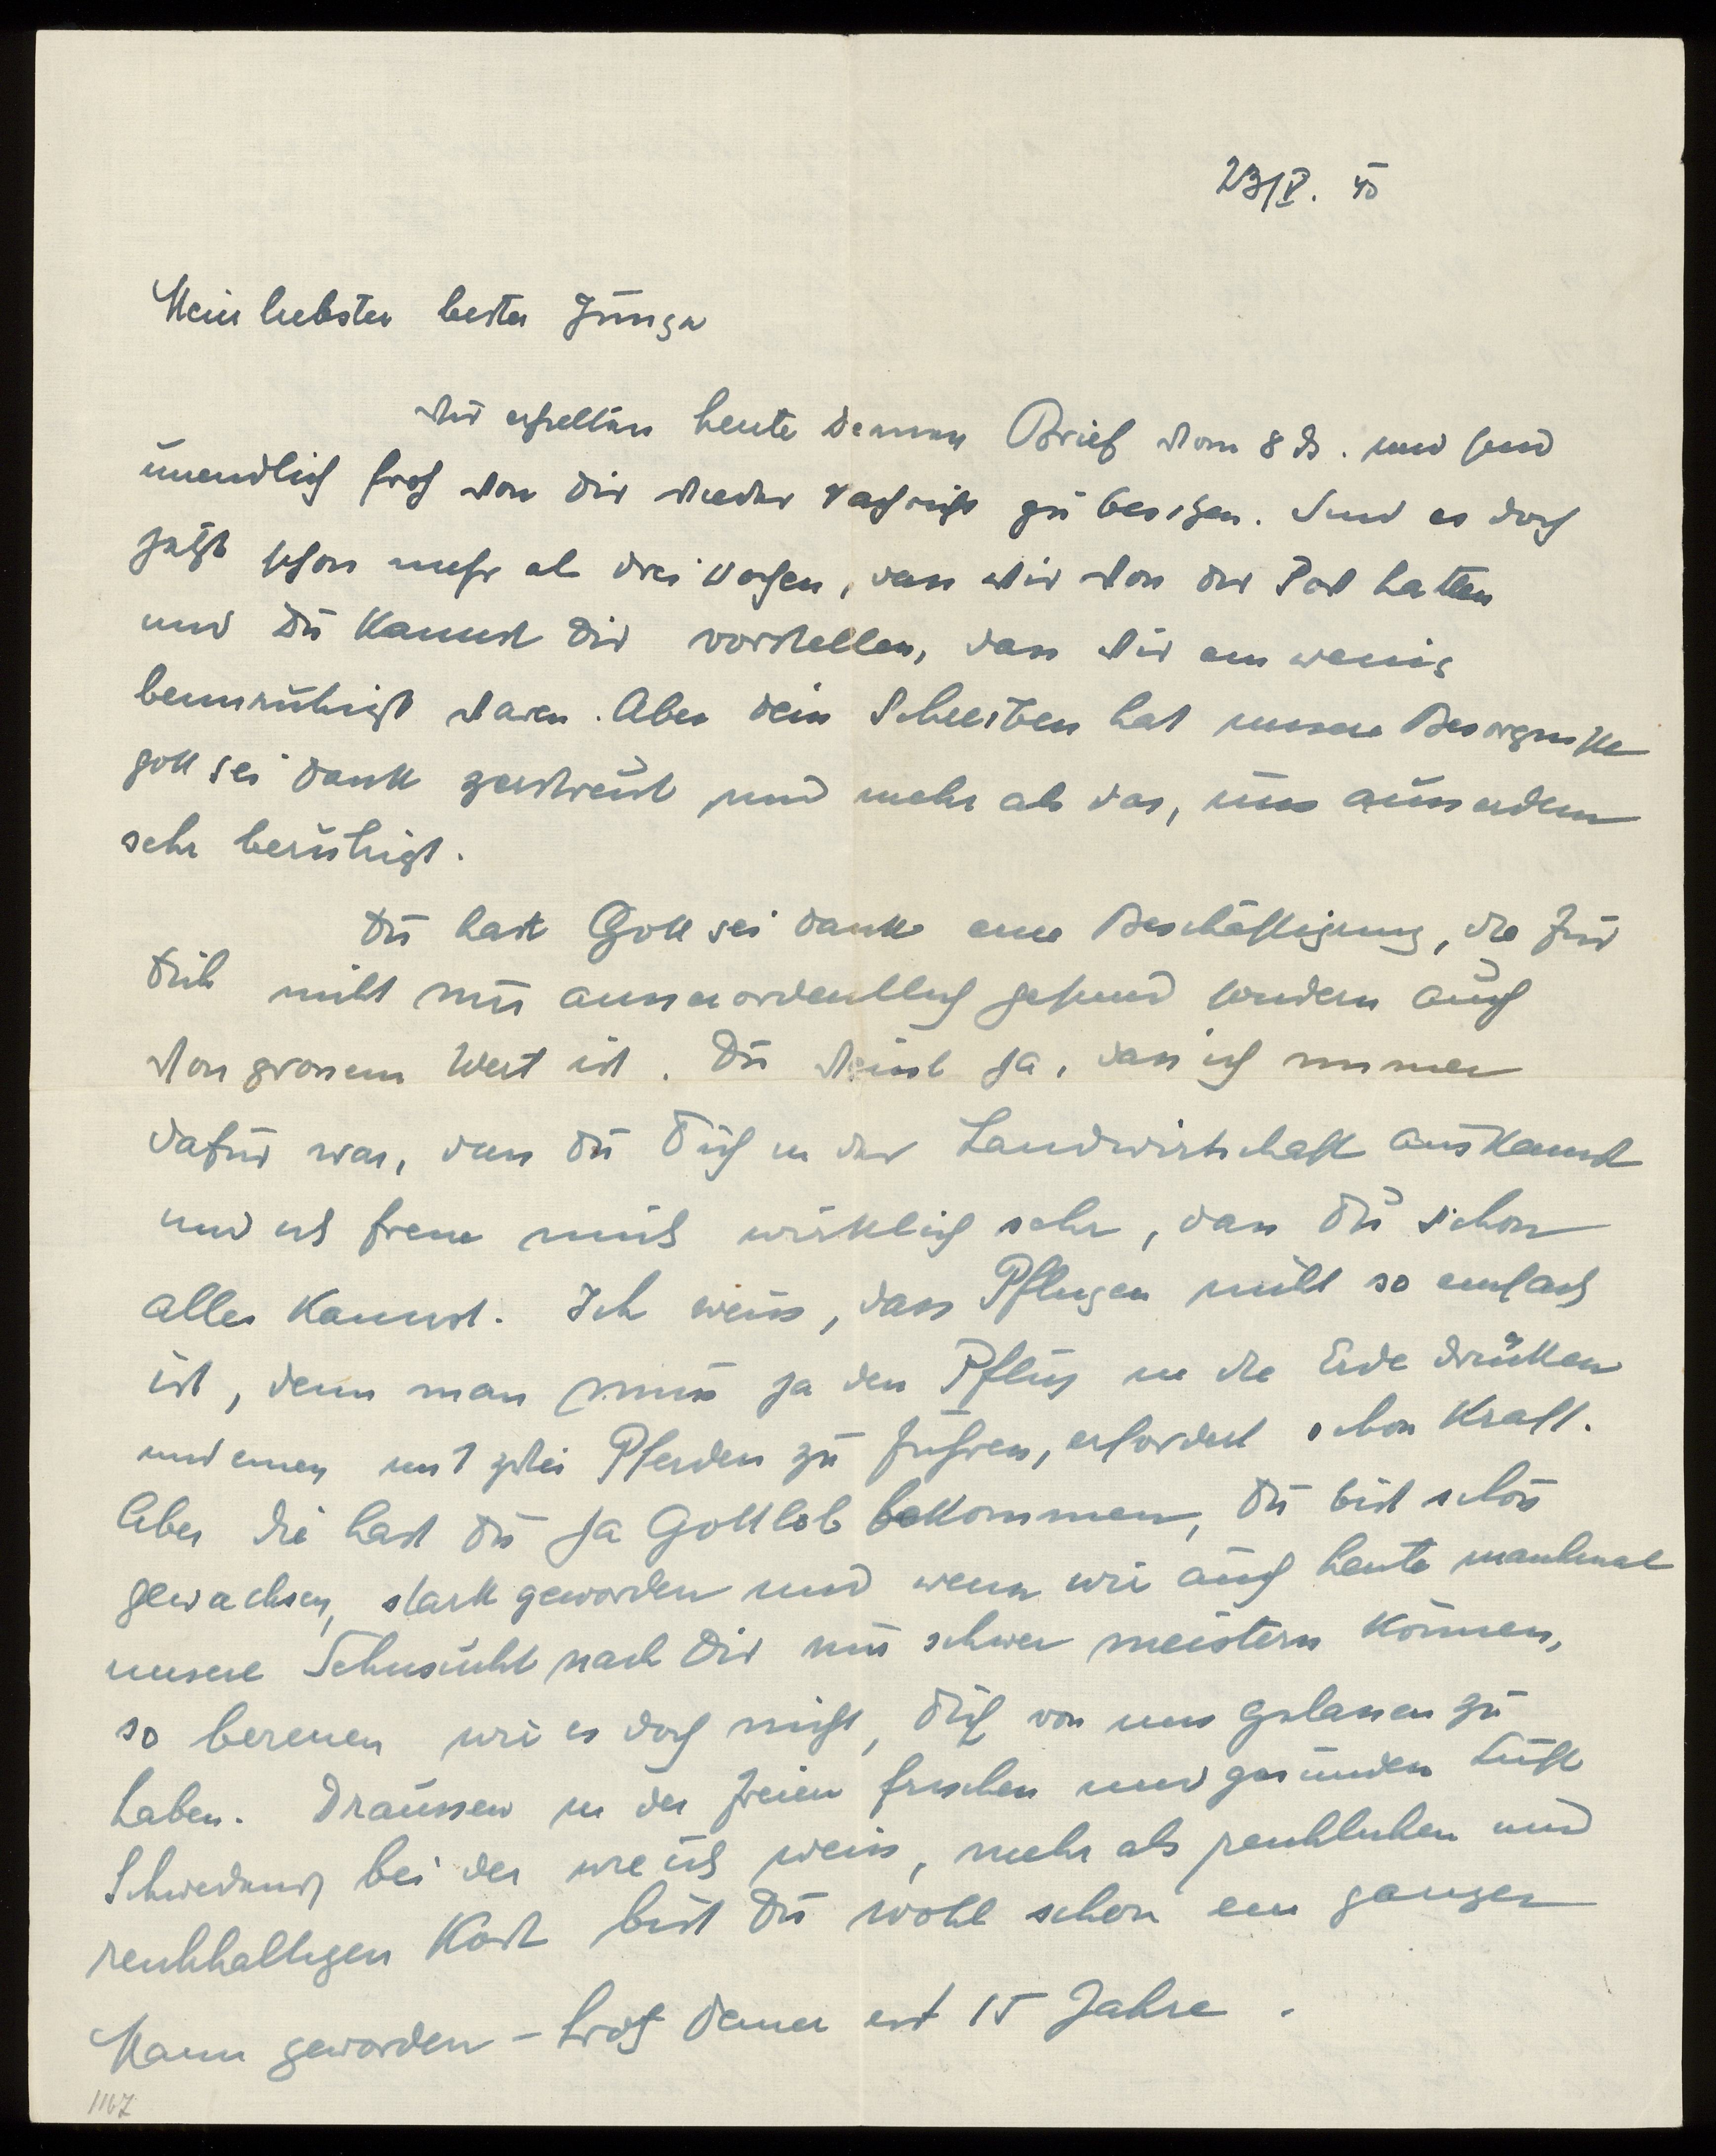 23/V. 40
Mein liebster bester Junge
Wir erhielten heute Deinen Brief vom 8 ds. und sind
unendlich froh von Dir wieder Nachricht zu besitzen. Sind es doch
jetzt schon mehr als drei Wochen, dass wir von Dir Post hatten
und Du kannst Dir vorstellen, dass wir ein wenig
beunruhigt waren. Aber dein Schreiben hat unsere Besorgnisse
gott sei dank zerstreut und mehr als das, uns ausserdem
sehr beruhigt.
Du hast Gott sei dank eine Beschäftigung, die für
Dich nicht nur ausserordentlich gesund sondern auch
von grossem Wert ist. Du weisst ja, dass ich immer
dafür war, dass Du Dich in der Landwirtschaft auskennst
und ich freue mich wirklich sehr, dass Du schon
alles kannst. Ich weiss, dass Pflügen nicht so einfach
ist, denn man muss ja den Pflug in die Erde drücken
und einen mit zwei Pferden zu führen, erfordert schon Kraft.
Aber die hast Du ja Gottlob bekommen, Du bist schön
gewachsen, stark geworden und wenn wir auch heute manchmal
unsere Sehnsucht nach Dir nur schwer meistern können,
so bereuen wir es doch nicht, Dich von uns gelassen zu
haben. Draussen in der freien frischen und gesunden Luft
Schwedens bei der wie ich weiss, mehr als reichlichen und
reichhaltigen Kost bist Du wohl schon ein ganzer
Mann geworden - trotz Deiner erst 15 Jahre.
1167